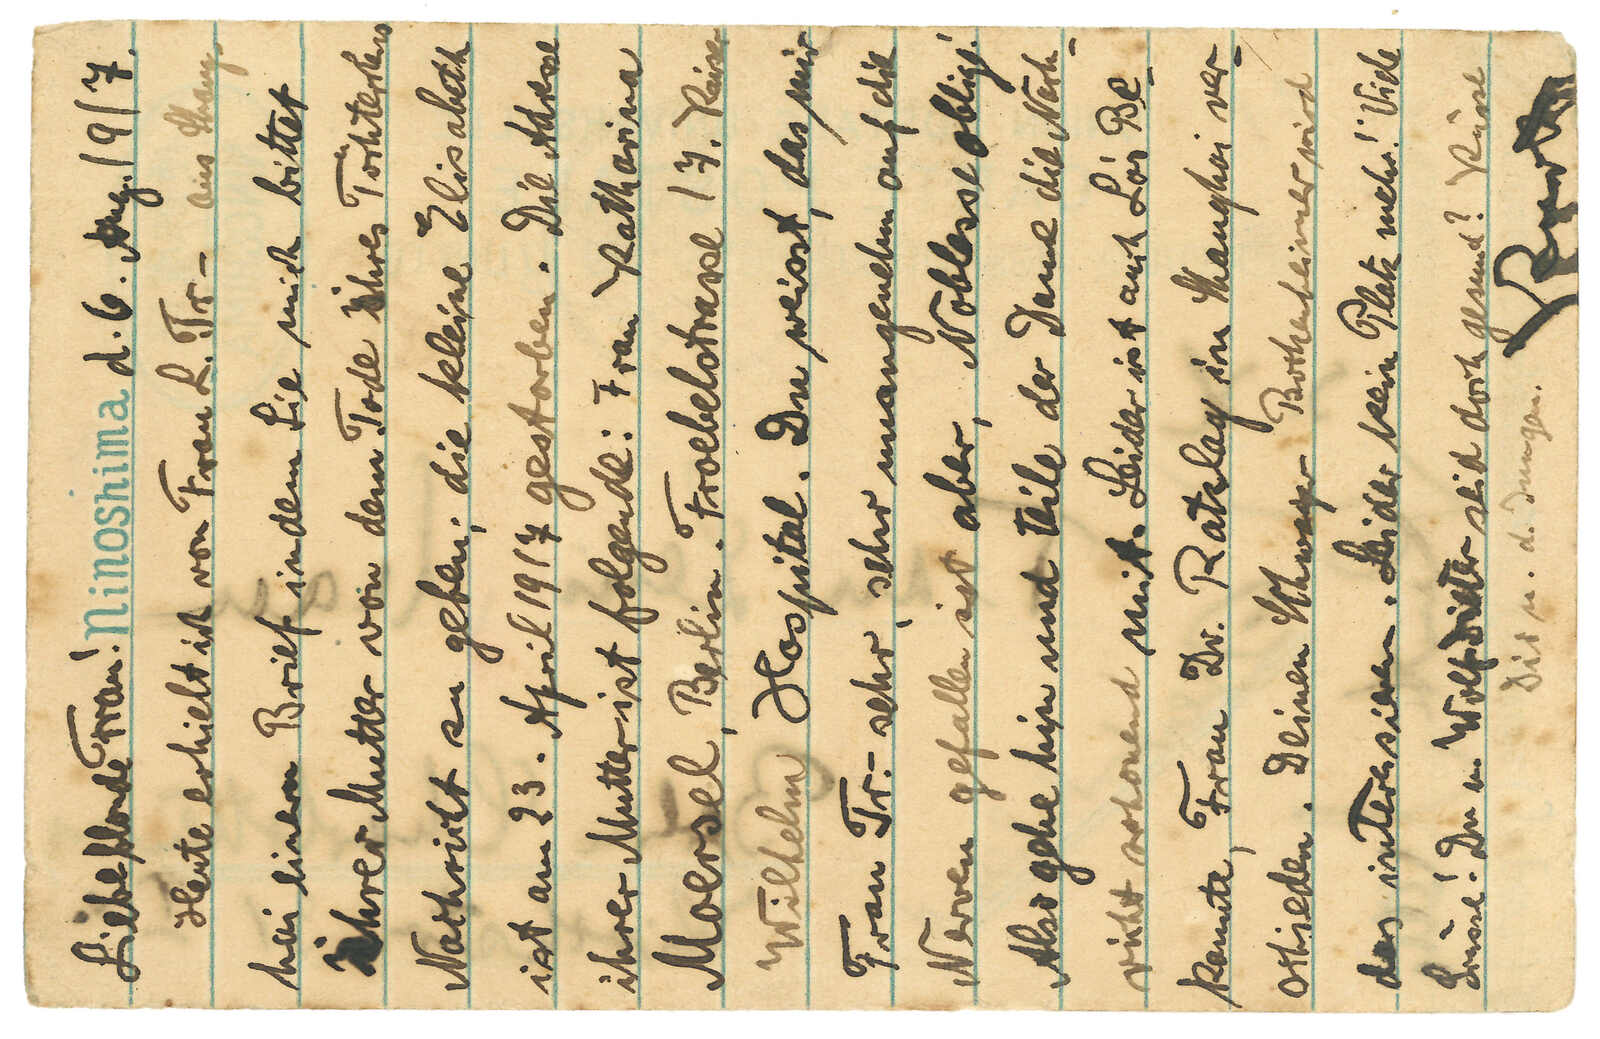 Liebe blonde Frau! Ninoshima d. 6. Aug. 1917.
Heute erhielt ich von Frau L. Tr- aus Shang-
hai einen Brief indem Sie mich bittet
ihrer Mutter von dem Tode ihres Töchterchens
Nachricht zu geben; die kleine Elisabeth
ist am 23. April 1917 gestorben. Die Adresse
ihrer Mutter ist folgende: Frau Katharina
Moersel, Berlin. Froebelstrasse 17. Kaiser
Wilhelm Hospital. Du weisst, das mir
Frau Tr.- sehr, sehr unangenehm auf die
Nerven gefallen ist aber, Noblesse oblige!
Also gehe hin und teile der Dame die Nach-
richt schonend mit. Leider ist auch Lois Be-
kannte, Frau Dr. Ratzlag in Shanghai ver-
schieden. Deinen Schwager Bothenheimer wird
das interessieren. Leider kein Platz mehr! Viele
Grüsse! Du u. Wolfdieter seid doch gesund? Küsse
Dir u. d. Jungen.